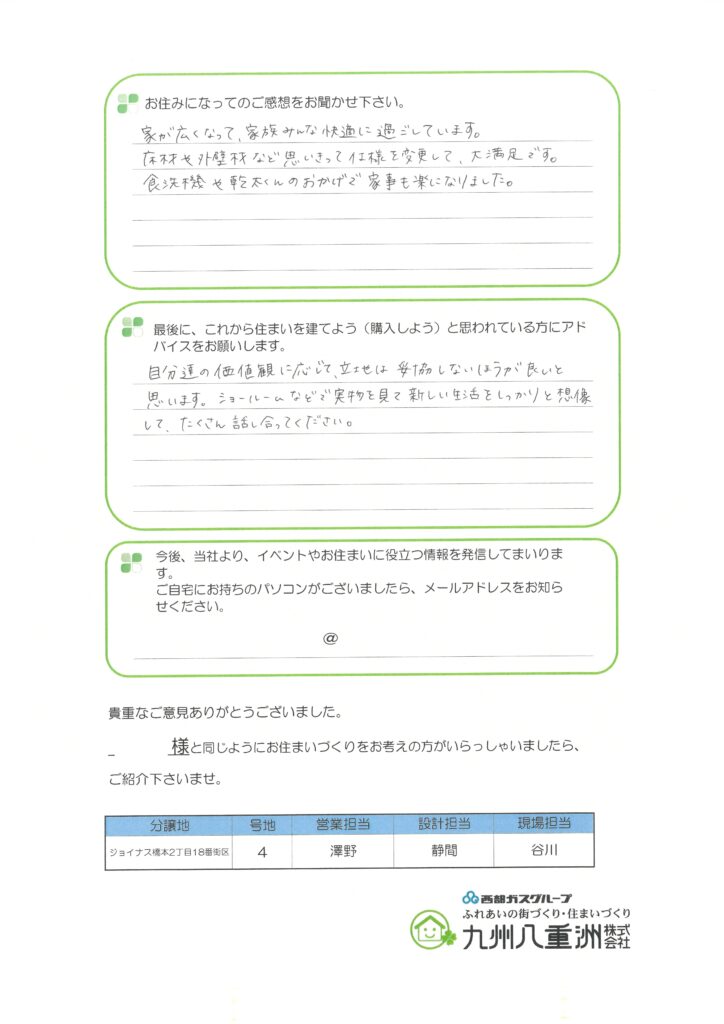 お住みになってのご感想をお聞かせ下さい。
家が広くなって、家族みんな快適に過ごしています。
床材や外壁材など思いきって仕様を変更して、大満足です。
食洗機や乾太くんのおかげで家事も楽になりました。
最後に、これから住まいを建てよう（購入しよう）と思われている方にアド
バイスをお願いします。
自分達の価値観に応じて、立地は妥協しないほうが良いと
思います。ショールームなどで実物を見て新しい生活をしっかりと想像
して、たくさん話し合ってください。
今後、当社より、イベントやお住まいに役立つ情報を発信してまいりま
す。
ご自宅にお持ちのパソコンがございましたら、メールアドレスをお知ら
せください。
@
貴重なご意見ありがとうございました。
_ 様と同じようにお住まいづくりをお考えの方がいらっしゃいましたら、
ご紹介下さいませ。
分譲地 号地 営業担当 設計担当 現場担当
ジョイナス橋本2丁目18番街区 4 澤野 静間 谷川
西部ガスグループ
ふれあいの街づくり・住まいづくり
九州八重洲株式会社